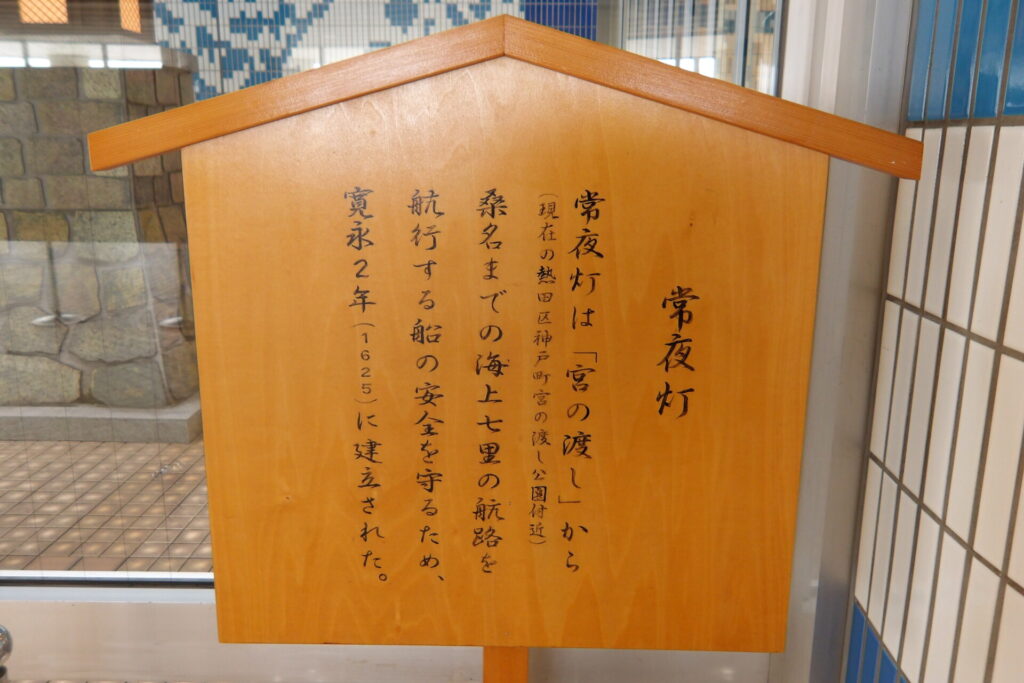 常夜灯
常夜灯は「宮の渡し」から
(現在の熱田区神戸町宮の渡し公園付近)
桑名までの海上七里の航路を
航行する船の安全を守るため、
寛永2年(1625)に建立された。